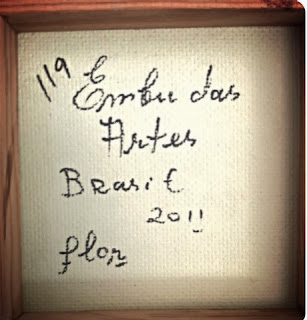 119 Embu das
Artes
Brasil
2011
flor